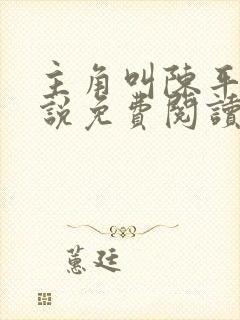 主角叫陳平
說免費閱讀
蕙廷